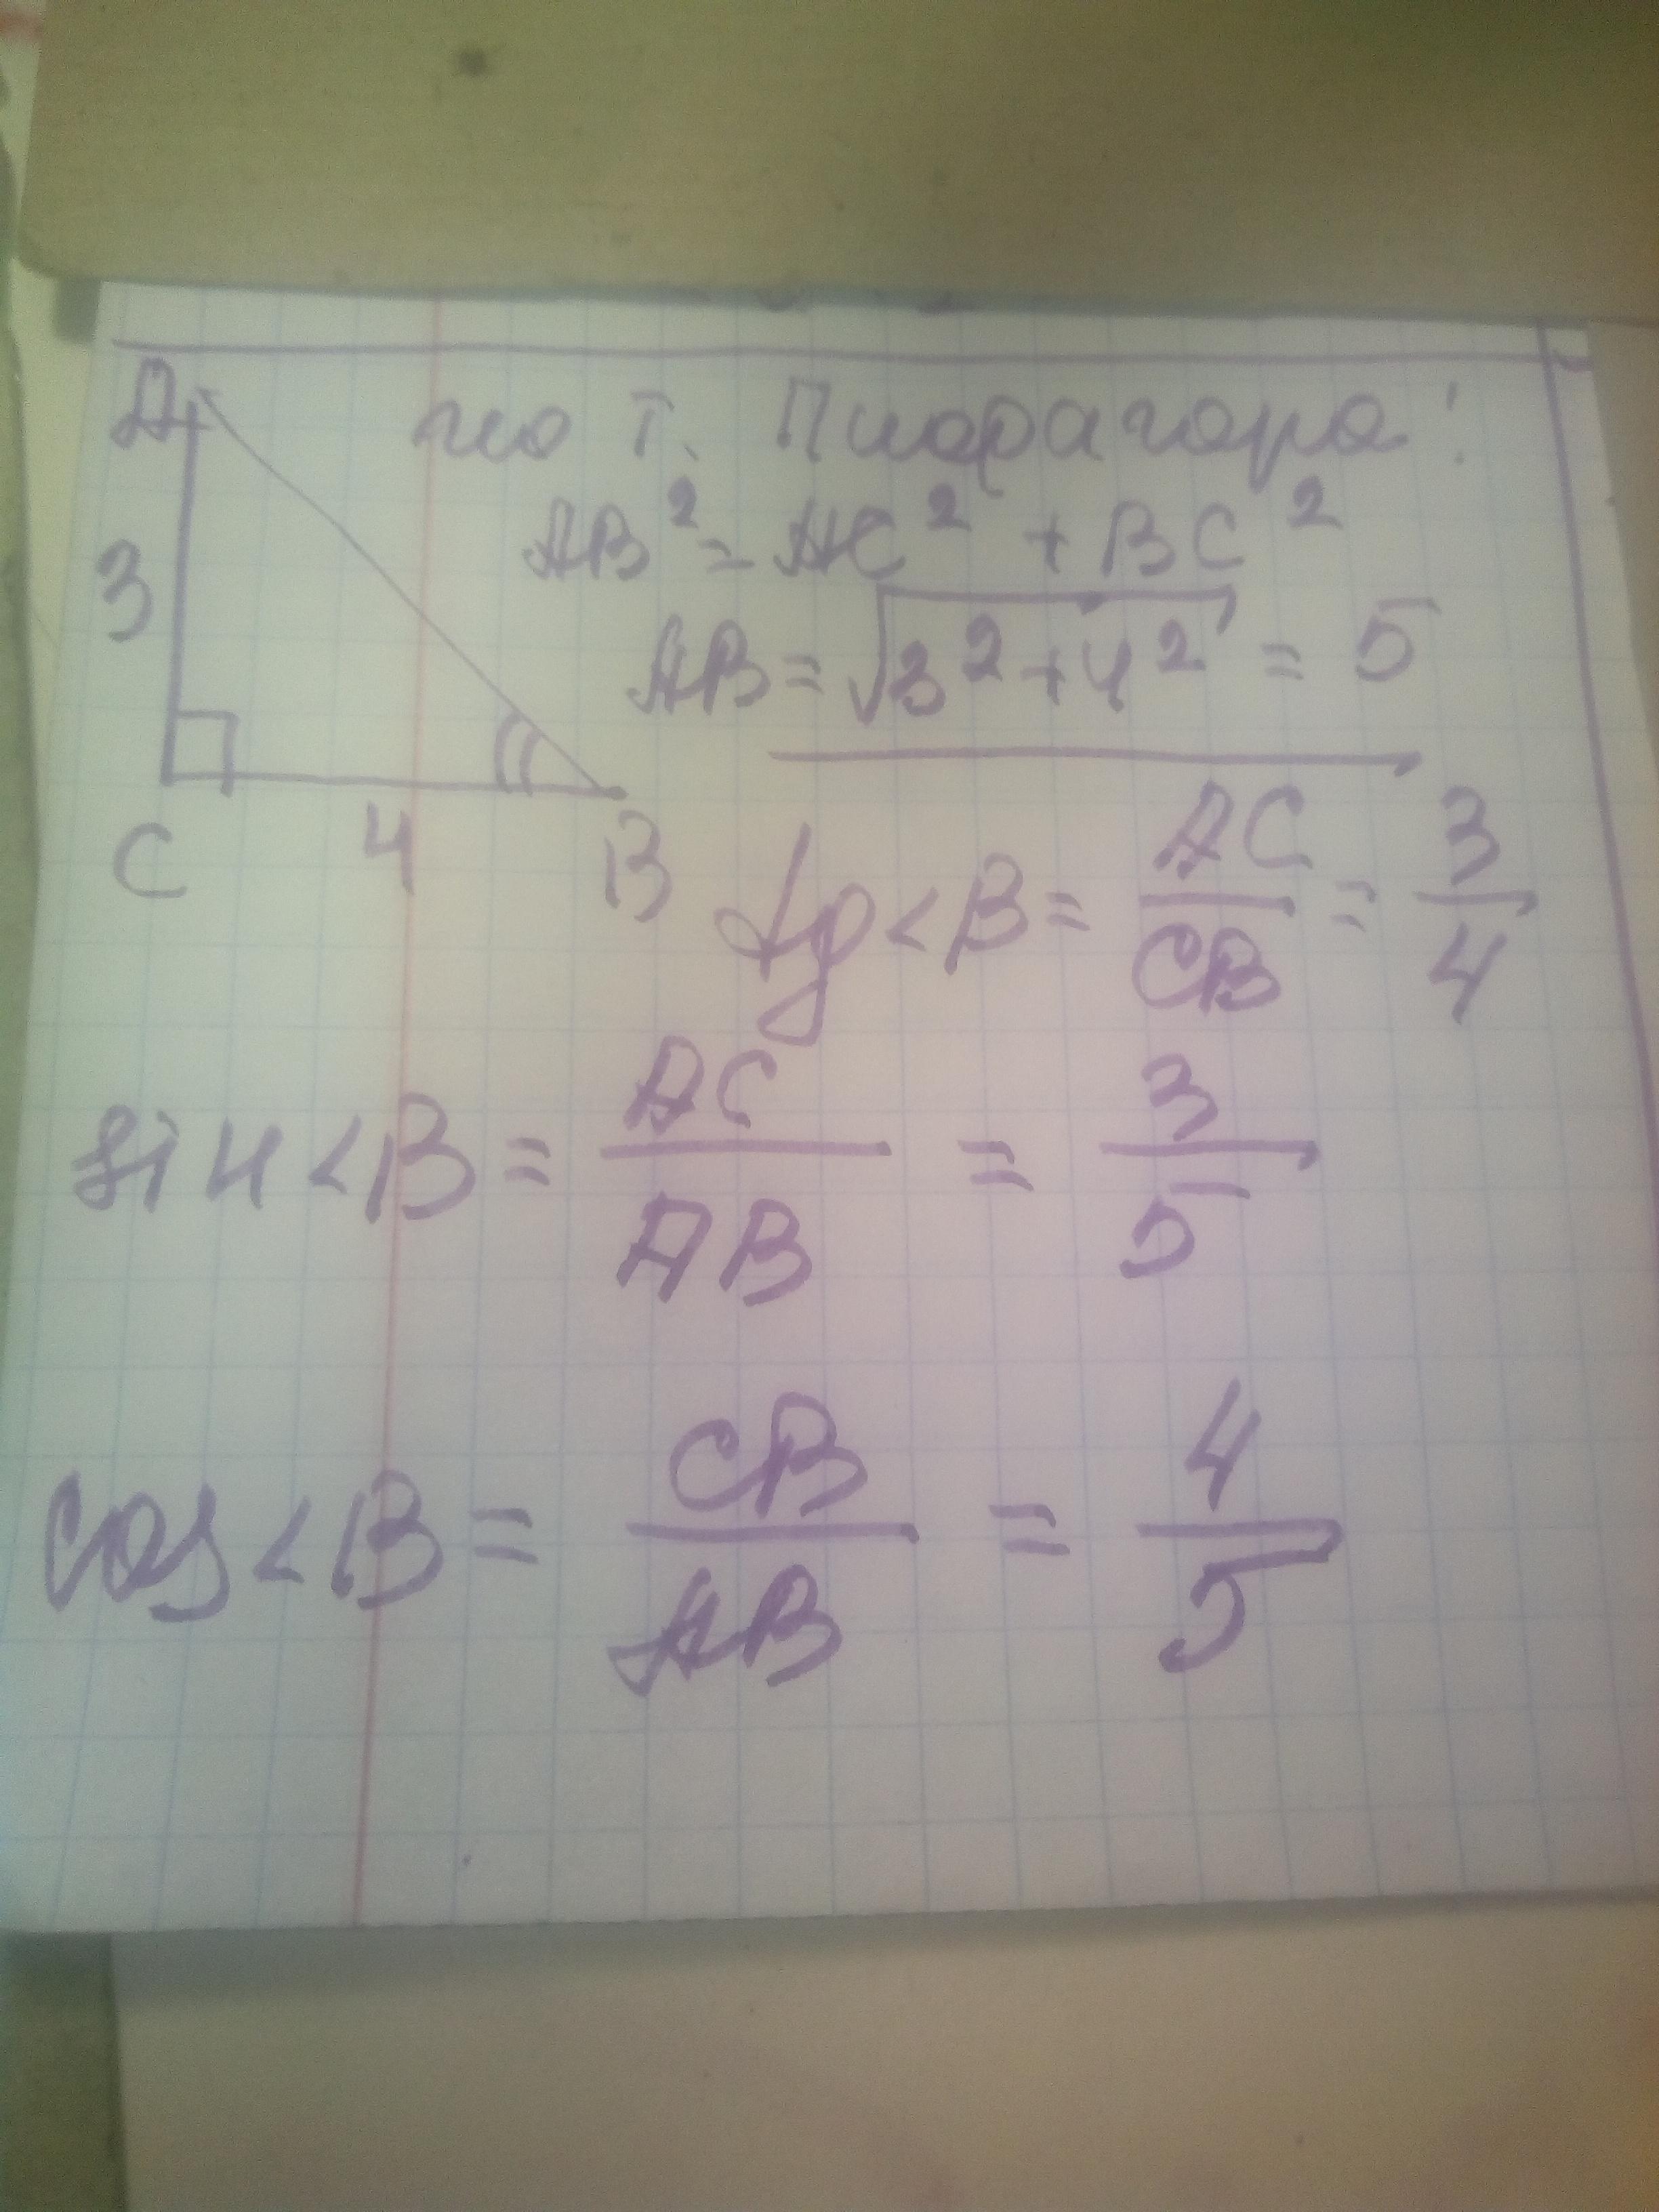 A по т. Пифагора:
AB² = AC² + BC²
3 AB = √3²+4² = 5
C 4 B
tg < B = AC/CB = 3/4
sin < B = AC/AB = 3/5
cos < B = CB/AB = 4/5